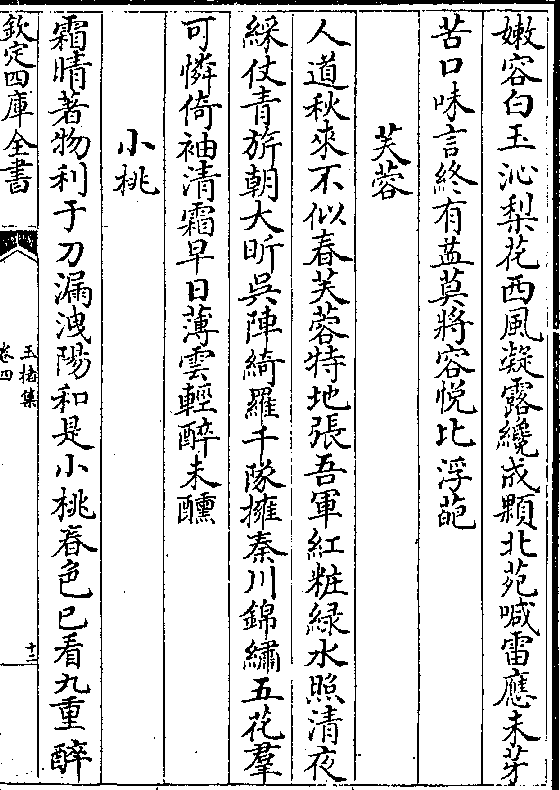 嫩容白玉沁梨花西風凝露纔成顆北苑喊雷應未芽
苦口味言終有益莫將容悅比浮葩
芙蓉
人道秋來不似春芙蓉特地張吾軍紅粧緑水照清夜
綵仗青旂朝大昕吳陣綺羅千隊擁秦川錦繡五花羣
可憐倚袖清霜早日薄雲輕醉未醺
小桃
霜晴著物利于刀漏洩陽和是小桃春色已看九重醉
欽定四庫全書
玉楮集
卷四
十三